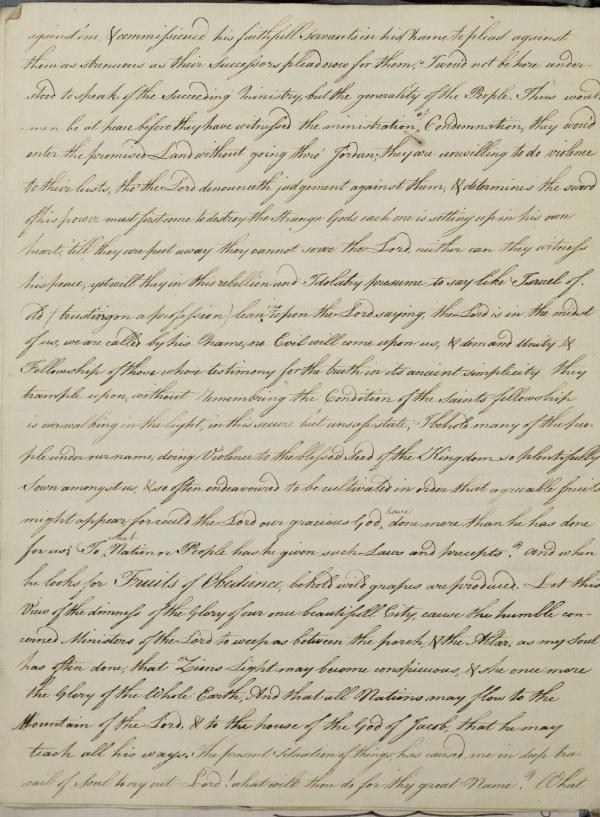 against em, & commissioned his faithfull Servants in his Name to plead against
them as strenuous as their Successors plead now for them, I woud not be here under-
stood to speak of the Succeeding Ministry, but the generality of the People. Thus would
men be at peace before they have witnessed the ministration of Condemnation, they would
enter the promised Land without going thro' Jordan; they are unwilling to do violence
to their lusts, tho' the Lord denounceth judgement against them, & determines the sword
of his power must first come to destroy the Strange Gods each one is setting up in his own
heart, till they are put away they cannot serve the Lord, neither can they witness
his peace, yet will they in this rebellion and Idolatry presume to say like Israel of
old (trusting in a profession) leaning upon the Lord saying, the Lord is in the midst
of us, we are called by his Name, no Evil will come upon us, & demand Unity &
Fellowship of those whose testimony for the truth in its ancient simplicity they
trample upon, without remembring the Condition of the saints fellowship
is our walking in the light, in this secure but unsafe state, I behold many of the peo-
ple under our name, doing Violence to the blessed Seed of the Kingdom so plentifully
Sown amongst us, & so often endeavoured to be cultivated in order that agreeable fruits
might appear, for could the Lord our gracious God, have done more than he has done
for us; To what Nation or People has he given such Laws and precepts? and when
he looks for Fruits of Obedience, behold wild grapes are produced. Let this
View of the dimness of the Glory of our once beautifull City, cause the humble con-
cerned Ministers of the Lord to weep as between the porch, & the Altar, as my Soul
has often done, that Zions Light may become conspicuous, & she once more
the Glory of the Whole Earth, And that all Nations may flow to the
Mountain of the Lord, & to the house of the God of Jacob, that he may
teach all his ways. The present situation of things has caused me in deep tra-
vail of Soul to cry out Lord! what wilt thou do for thy great Name? What